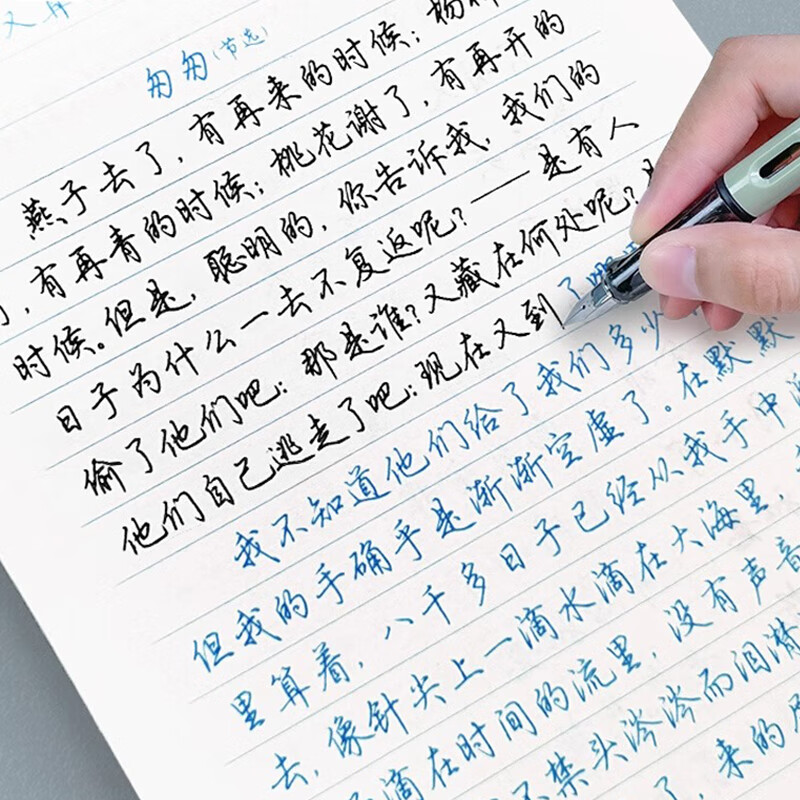 匆匆(节选)
燕子去了，有再来的时候；杨
了，有再青的时候；桃花谢了，有再开的
时候。但是，聪明的，你告诉我，我们的
日子为什么一去不复返呢？——是有人
偷了他们吧：那是谁？又藏在何处呢？
他们自己逃走了吧：现在又到了哪
我不知道他们给了我们多少
但我的手确乎是渐渐空虚了。在默默
里算着，八千多日子已经从我手中溜
去，像针尖上一滴水滴在大海里，
滴在时间的流里，没有声音
不禁头涔涔而泪潸
了，来的